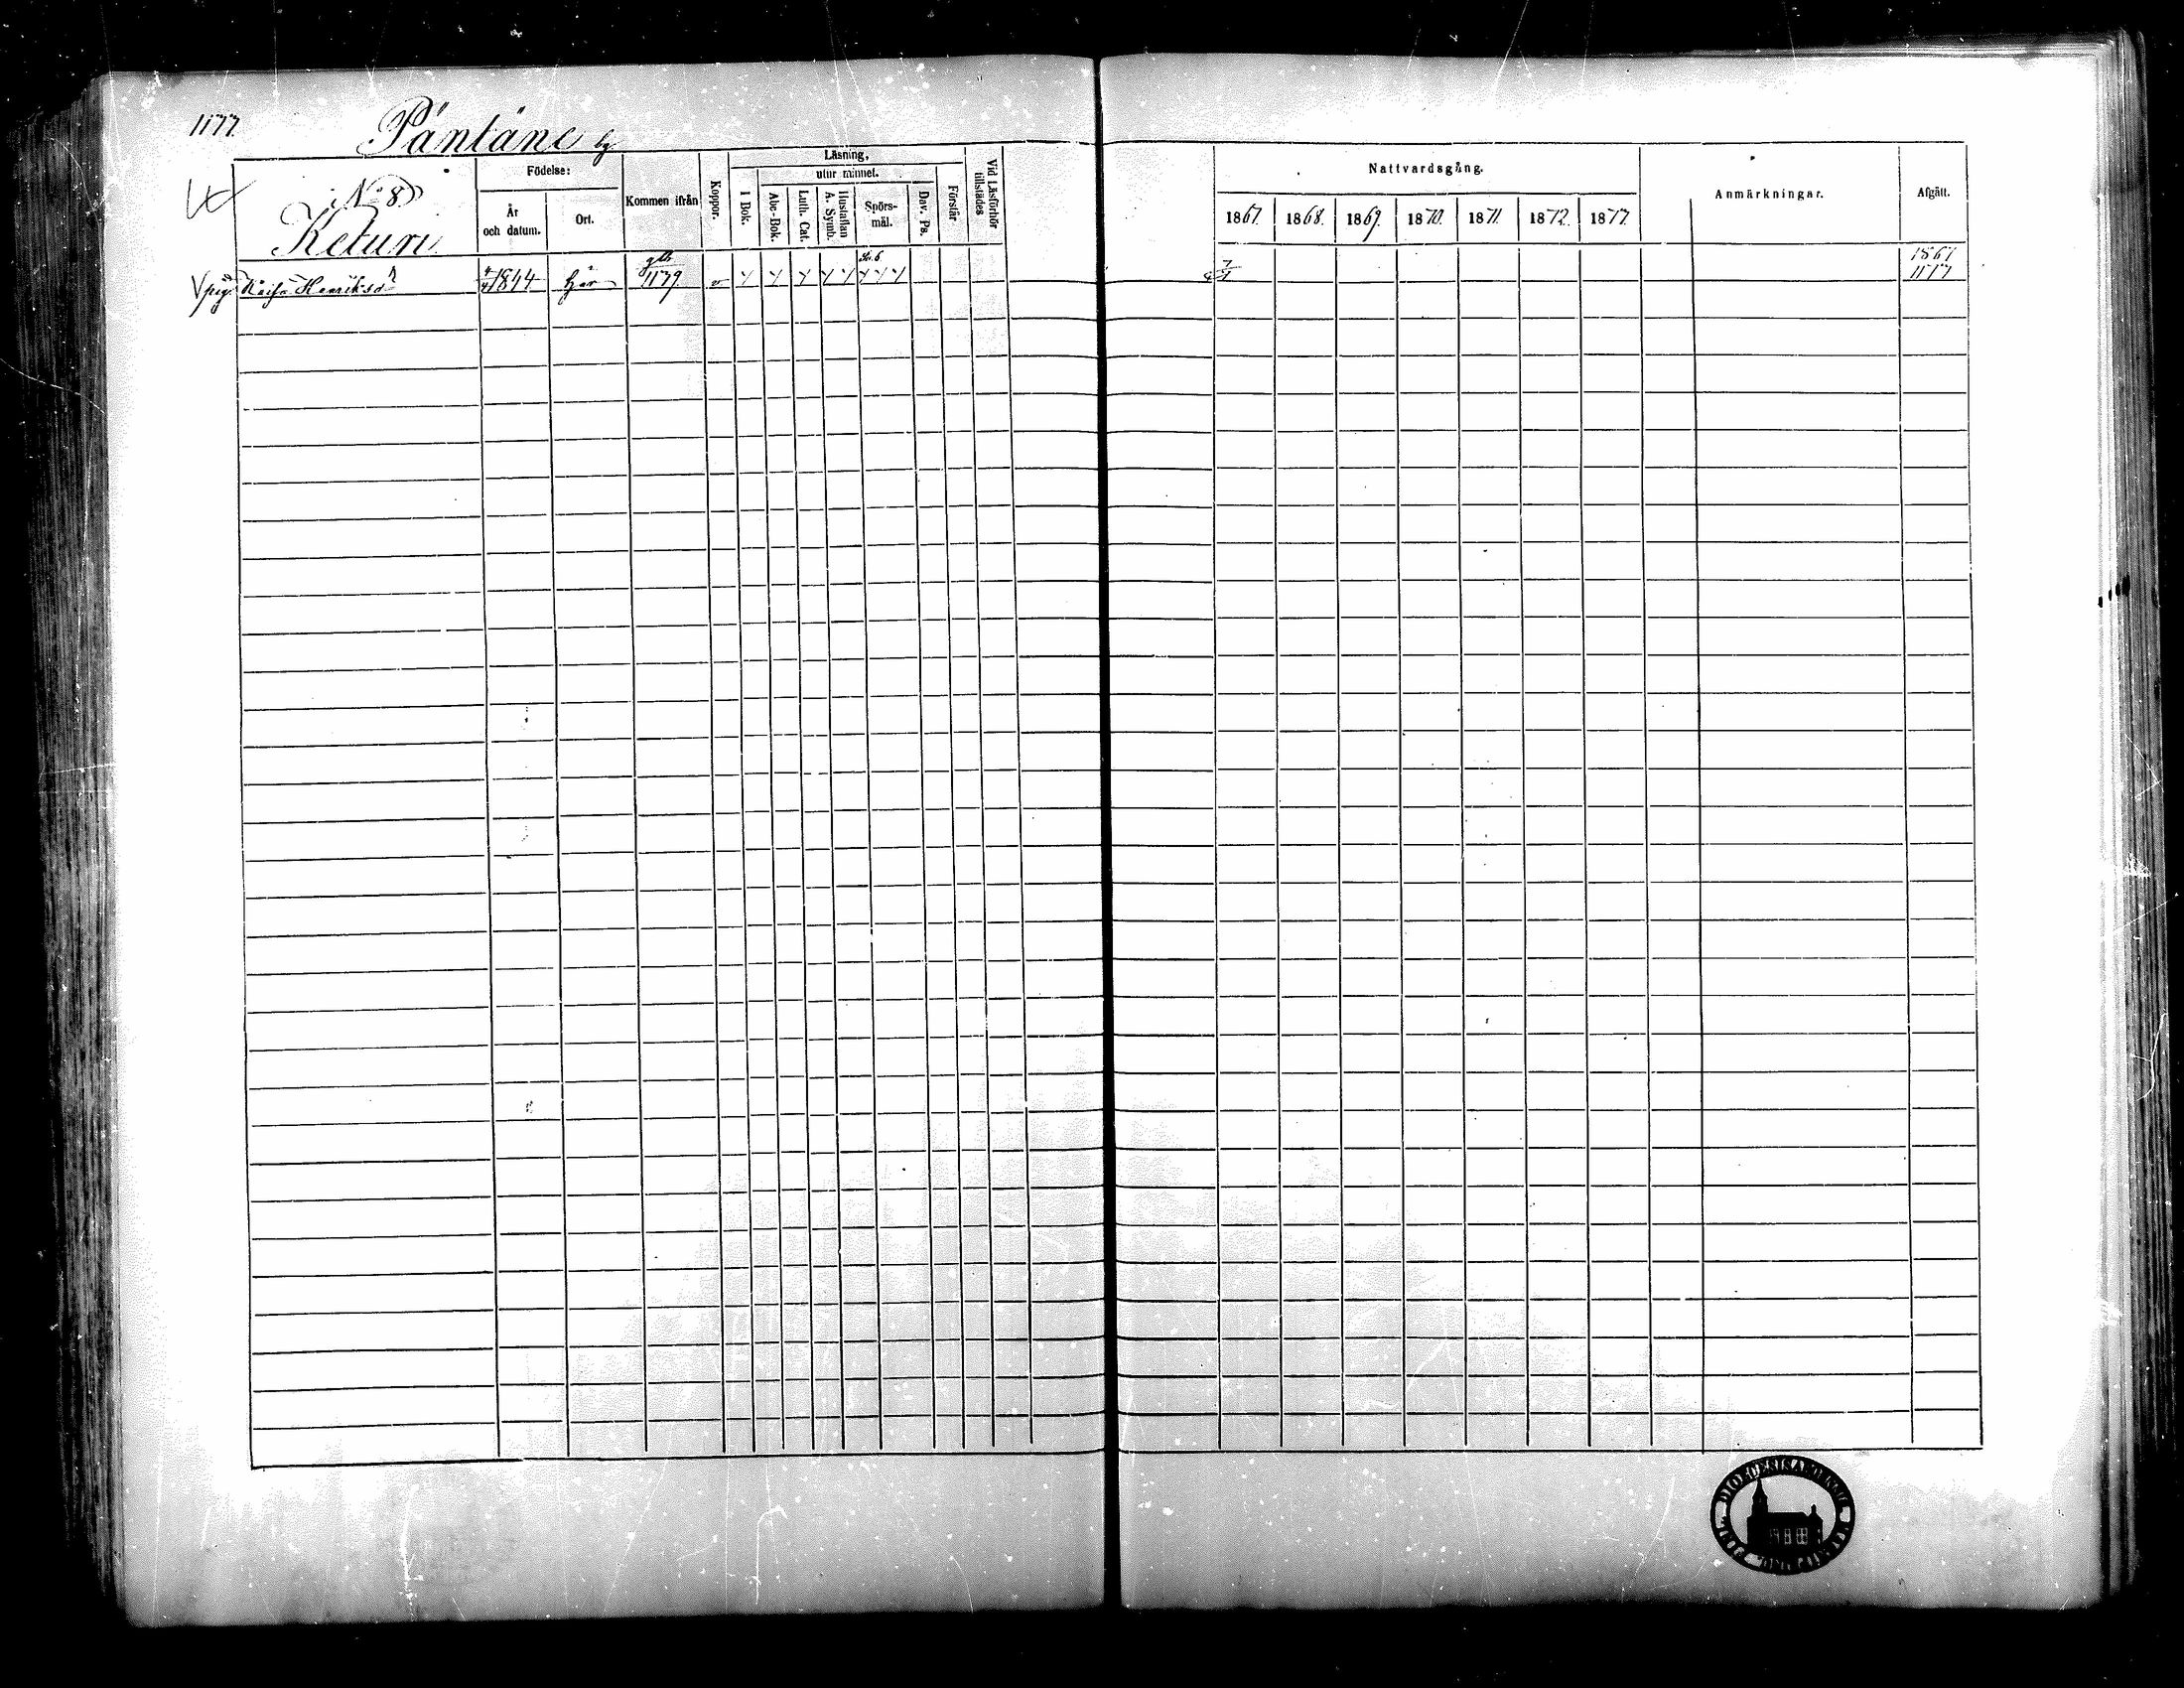 1177.
Päntäne by
No 8
Keturi
Födelse:
År och datum.
Ort.
Kommen ifrån
Koppor.
Läsning,
utur minnet.
I Bok.
Abc-Bok.
Luth. Cat.
Hustaflan A. Symb.
Spörs-mål.
Dav. Ps.
Förstår
Vid Läsförhör tillstädes
Nattvardsgång.
1867. 1868. 1869. 1870. 1871. 1872. 1877.
Anmärkningar.
Afgått.
pig. Kaisa Henriksdr 1844 här 1179
1867
1177